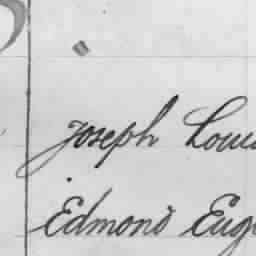 Joseph Loui
Edmond Eug